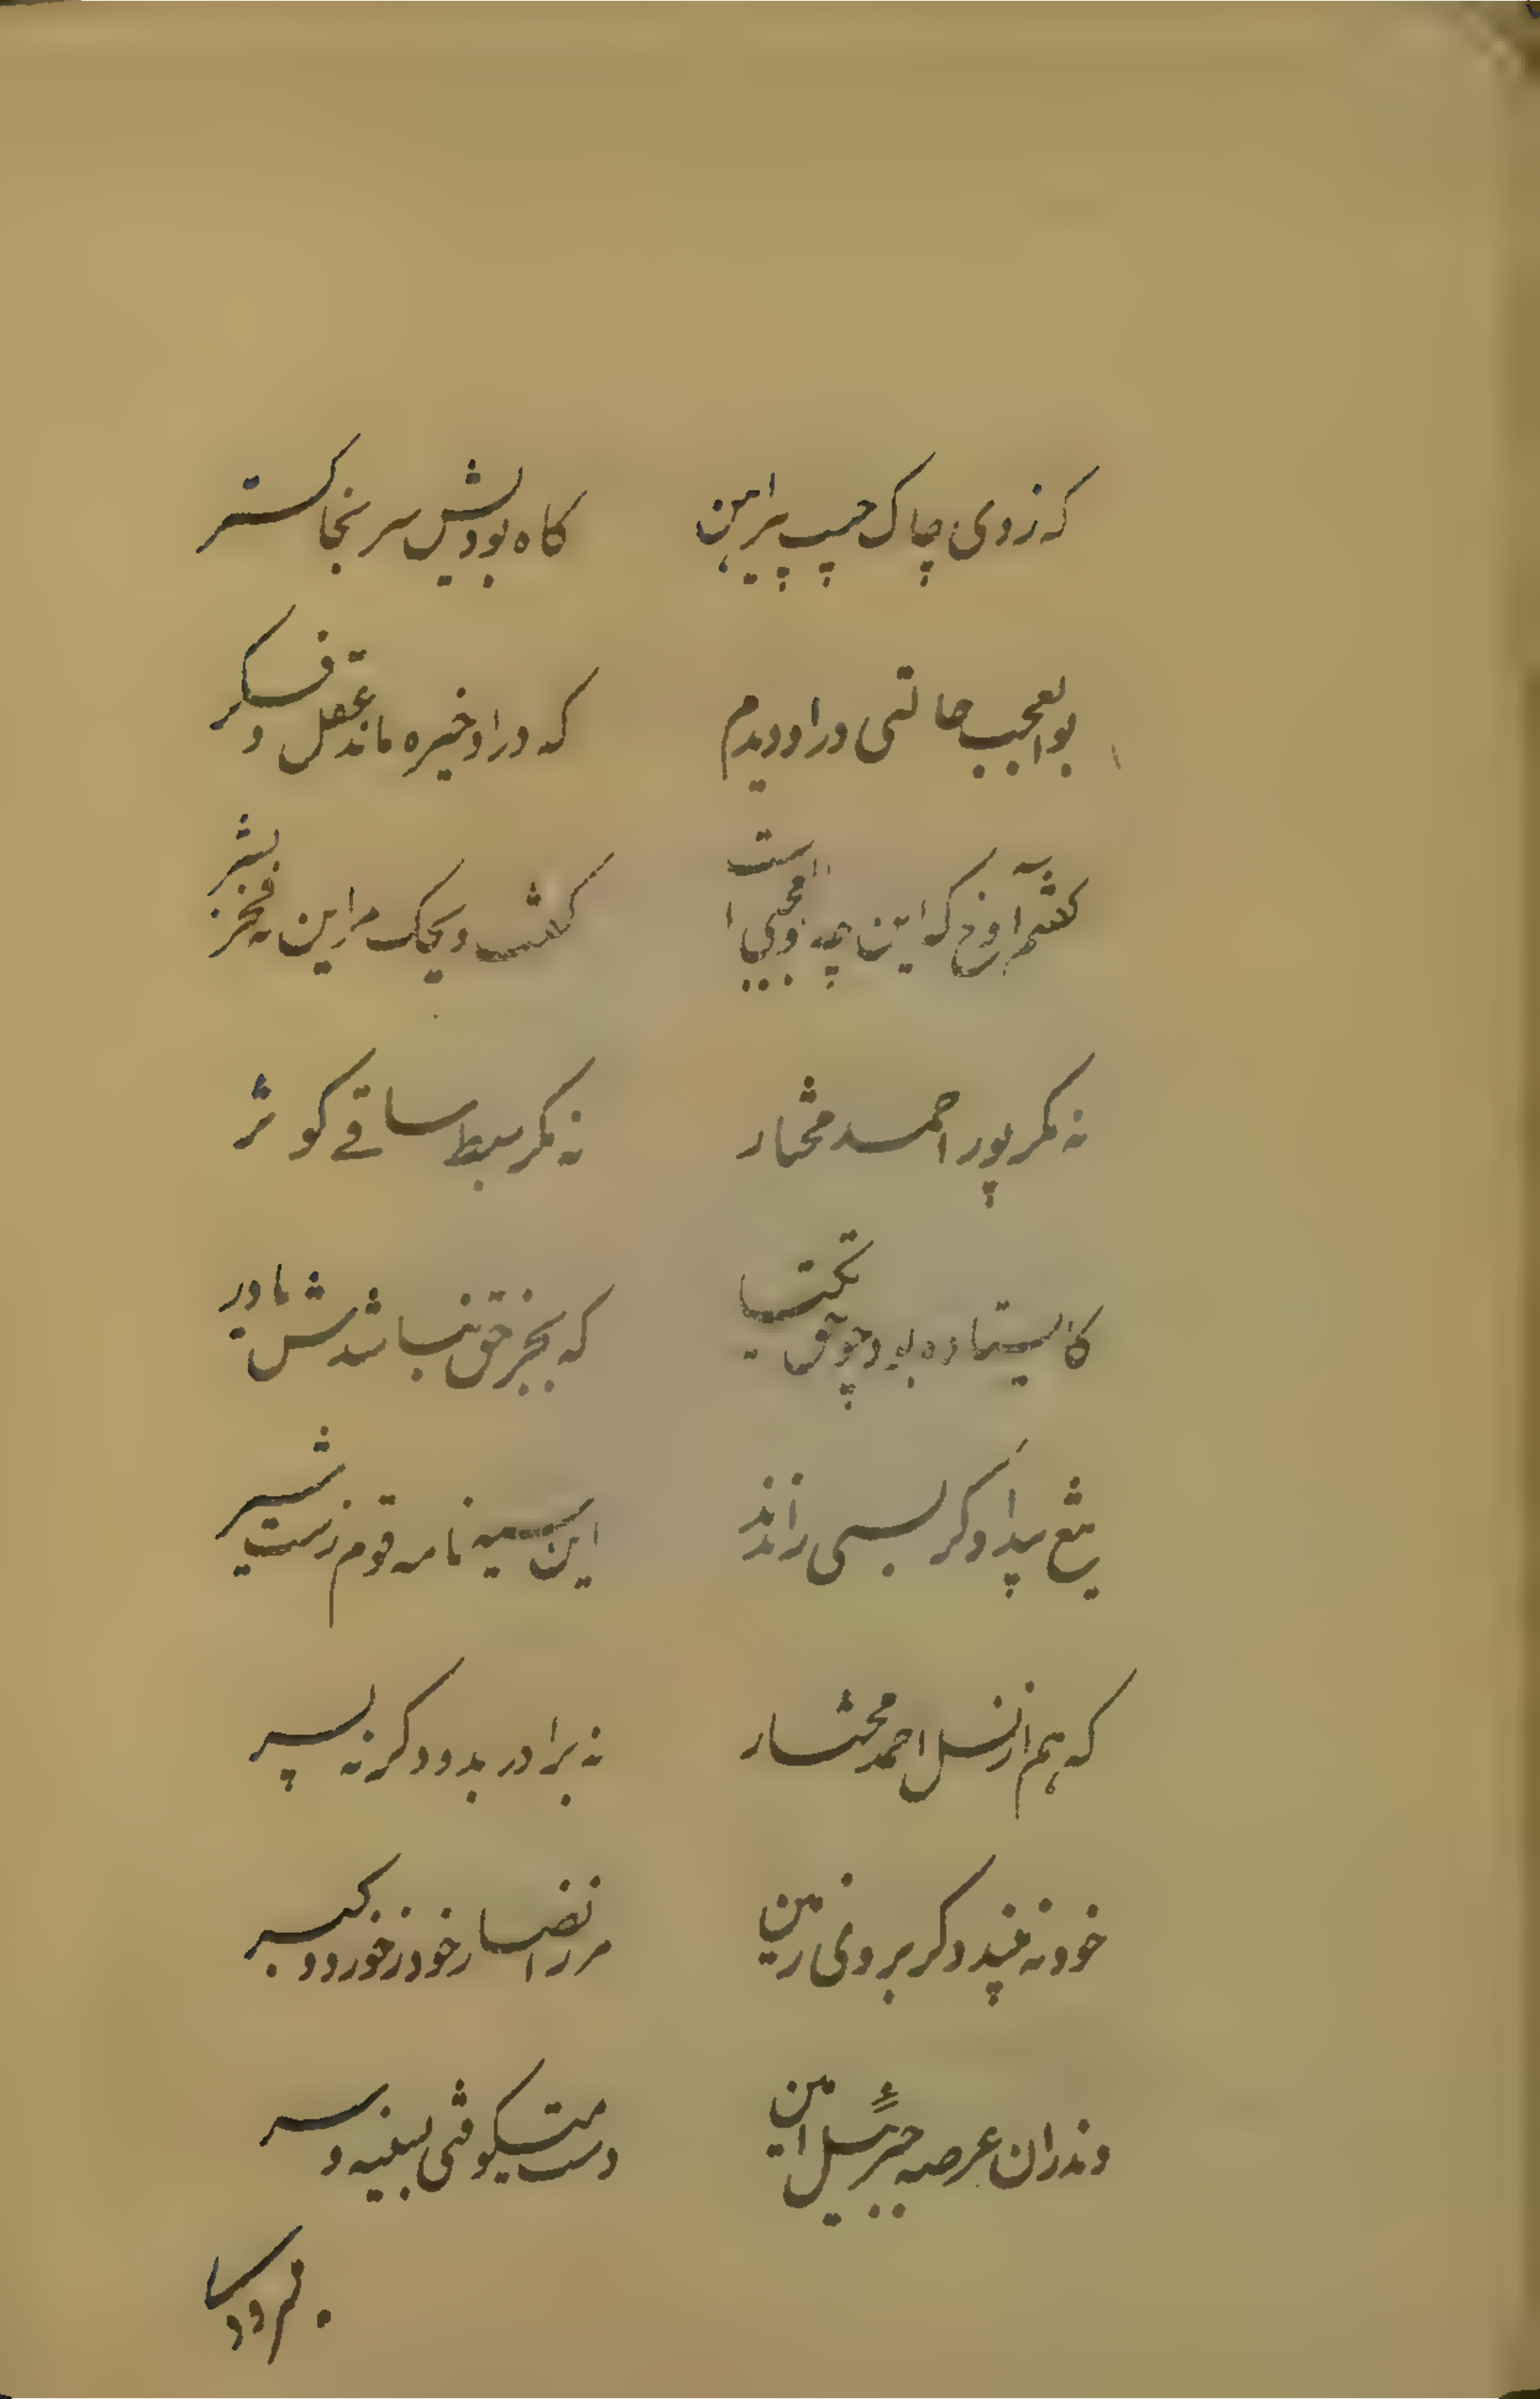 که زدی چاک جیب پیراهن کاه بودیش سر بخاکستر
بوالعجب حالتی در او دیدم که در او خیره ماند عقل و فکر
گفتم آوخ که این چه بوالعجبی است گفت ویحک مر این نه فخر بشر
نه مگر پور احمد مختار نه مگر سبط ساقے کوثر
کایستاده بود چو حق که بجز حق نباشدش یاور
تیغ بیداد گر بسی راندند این سیه نامه قوم زشت سیر
که هم از نسل احمد مختار نه برادر بدو دگر نه پسر
خود نه بیند دگر بروی زمین مر ز انصار خود ز خورد و کبر
وندران عرصه جبرئیل امین دست میکوفتی بسینه و سر